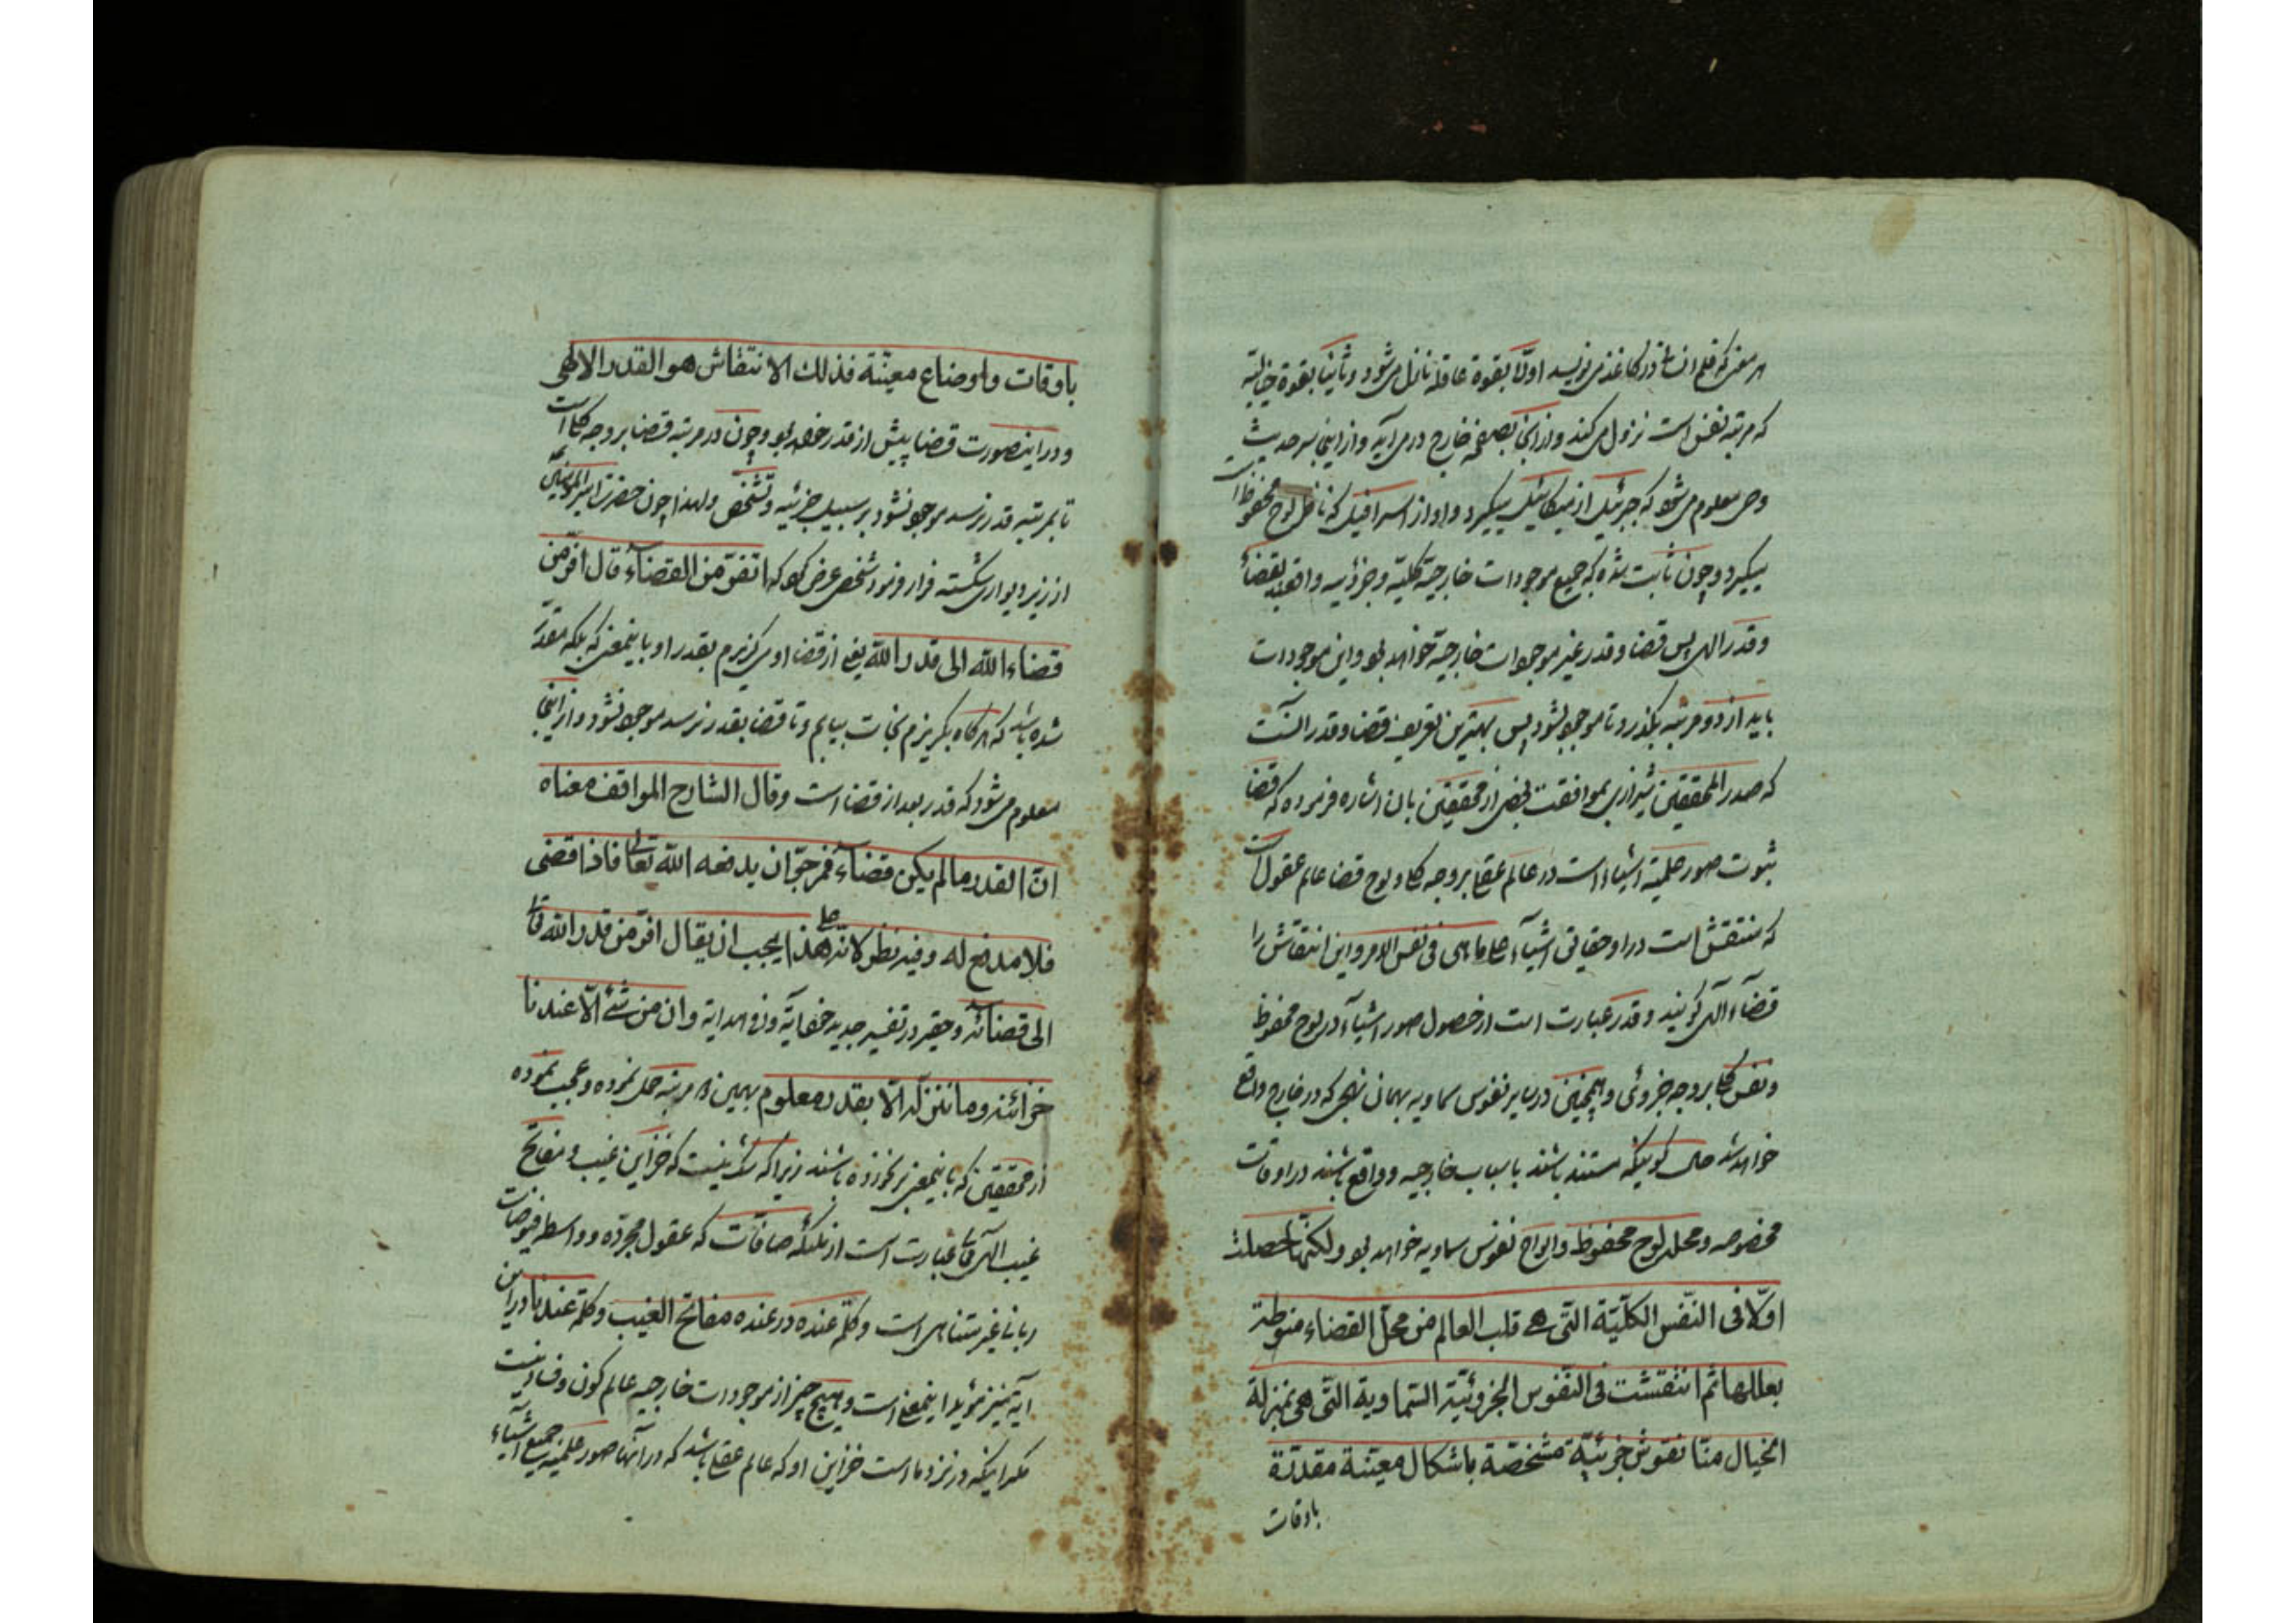 هر معنی که قلم انسان در کاغذ می نویسد اولا بقوة عاقله نازل می شود و ثانیا بقوة خیالیه
که مرتبه نفس است نزول می کند و از آنجا بصفحه خارج در می آید و از اینجا سر حدیث
وحی معلوم می شود که جبرئیل از میکائیل میگیرد و او از اسرافیل که ناظر لوح محفوظ است
میگیرد و چون ثابت شده که جمیع موجودات خارجیه کلیه و جزئیه واقعند بقضاء
و قدر الهی پس قضا و قدر غیر موجودات خارجیه خواهد بود و این موجودات
باید از دو مرتبه بگذرد تا موجود شود پس بهترین تعریف قضا و قدر آنست
که صدر المحققین شیرازی بموافقت بعضی از محققین بان اشاره فرموده که قضا
ثبوت صور علمیه اشیاء است در عالم عقلی بر وجه کلی و لوح قضا عالم عقول است
که منتقش است در او حقایق اشیاء علی ما هی فی نفس الامر و این انتقاش را
قضاء الهی گویند و قدر عبارت است از حصول صور اشیاء در لوح محفوظ
و نفس کلی بر وجه جزوئی و همچنین در سایر نفوس سماویه بهمان نهجی که در خارج واقع
خواهد شد حال کونیکه مستند باشند باسباب خارجیه و واقع باشند در اوقات
مخصوصه و محل لوح محفوظ و الواح نفوس سماویه خواهد بود ولکنها حصلت
اولا فی النفس الکلیة التی هی قلب العالم من محل القضاء منوطة
بعللها ثم انتقشت فی النفوس الجزوئیة السماویة التی هی بمنزلة
الخیال منا نقوش جزئیة مشخصة باشکال معینة مقدرة
باوقات
باوقات و اوضاع معینة فذلك الانتقاش هو القدر الالهی
و در اینصورت قضا پیش از قدر خواهد بود و چون در مرتبه قضا بر وجه کلی است
تا بمرتبه قدر نرسد موجود نشود بر سبیل جزئیه و تشخص و لهذا چون حضرت امیر المؤمنین
از زیر دیواری شکسته فرار فرمود شخصی عرض کرد که اتفر من القضاء قال افر من
قضاء الله الی قدر الله یعنی از قضا او می گریزم بقدر او باینمعنی که بلکه مقدر
شده باشد که هرگاه بگریزم نجات بیابم و تا قضا بقدر نرسد موجود نشود و از اینجا
معلوم می شود که قدر بعد از قضا است و قال الشارح المواقف معناه
ان القدر ما لم یکن قضاء فمرجو ان یدفعه الله تعالی فاذا قضی
فلا مدفع له و فیه نظر لانه علی هذا یجب ان یقال افر من قدر الله تعالی
الی قضائه و حقیر در تفسیر جدید وان من شئ الا عندنا
خزائنه وما ننزله الا بقدر معلوم بهمین دو مرتبه حمل نموده و عجب نموده
از محققین که باینمعنی بر نخورده باشند زیرا که شک نیست که خزاین غیب و مفاتح
غیب الهی عبارت است از ملئکه صافات که عقول مجرده و واسطه فیوضات
ربانی غیر متناهی است و کلمه عنده در عنده مفاتح الغیب و کلمه عندنا در این
آیه نیز مؤید اینمعنی است و هیچ چیز از موجودات خارجیه عالم کون و فساد نیست
مگر اینکه در نزد ما است خزاین او که عالم عقلی باشد که در آنها صور علمیه جمیع اشیاء